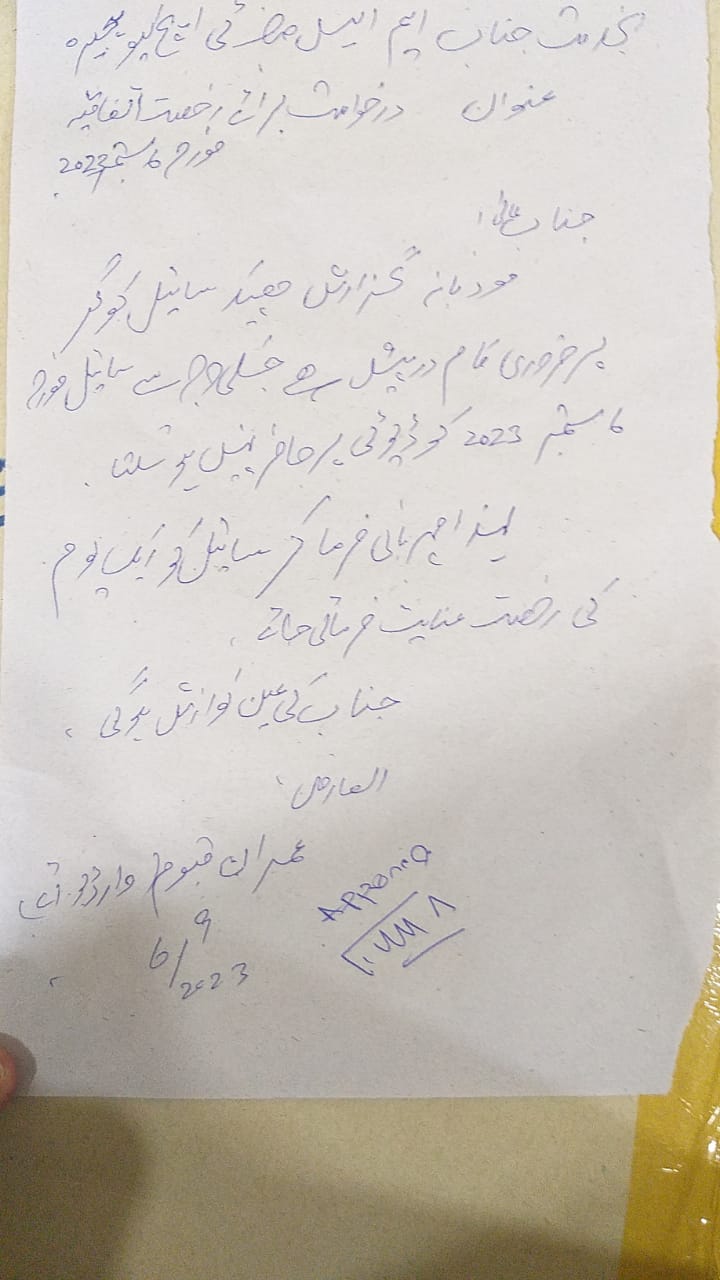 بخدمت جناب ایم ایس صاحب ٹی ایچ کیو ہجیرہ
عنوان درخواست برائے رخصت اتفاقیہ
مورخہ 6 ستمبر 2023
جناب عالی!
مودبانہ گزارش ہیکہ سائیل کو گھر
پر ضروری کام درپیش ہے جسکی وجہ سے سائیل مورخہ
6 ستمبر 2023 کو ڈیوٹی پر حاضر نہیں ہو سکتا ۔
لہذا مہربانی فرما کر سائیل کو ایک یوم
کی رخصت عنایت فرمائی جائے ۔
جناب کی عین نوازش ہوگی ۔
العارض
عمران قیوم وارڈ بوائے
6/9
2023